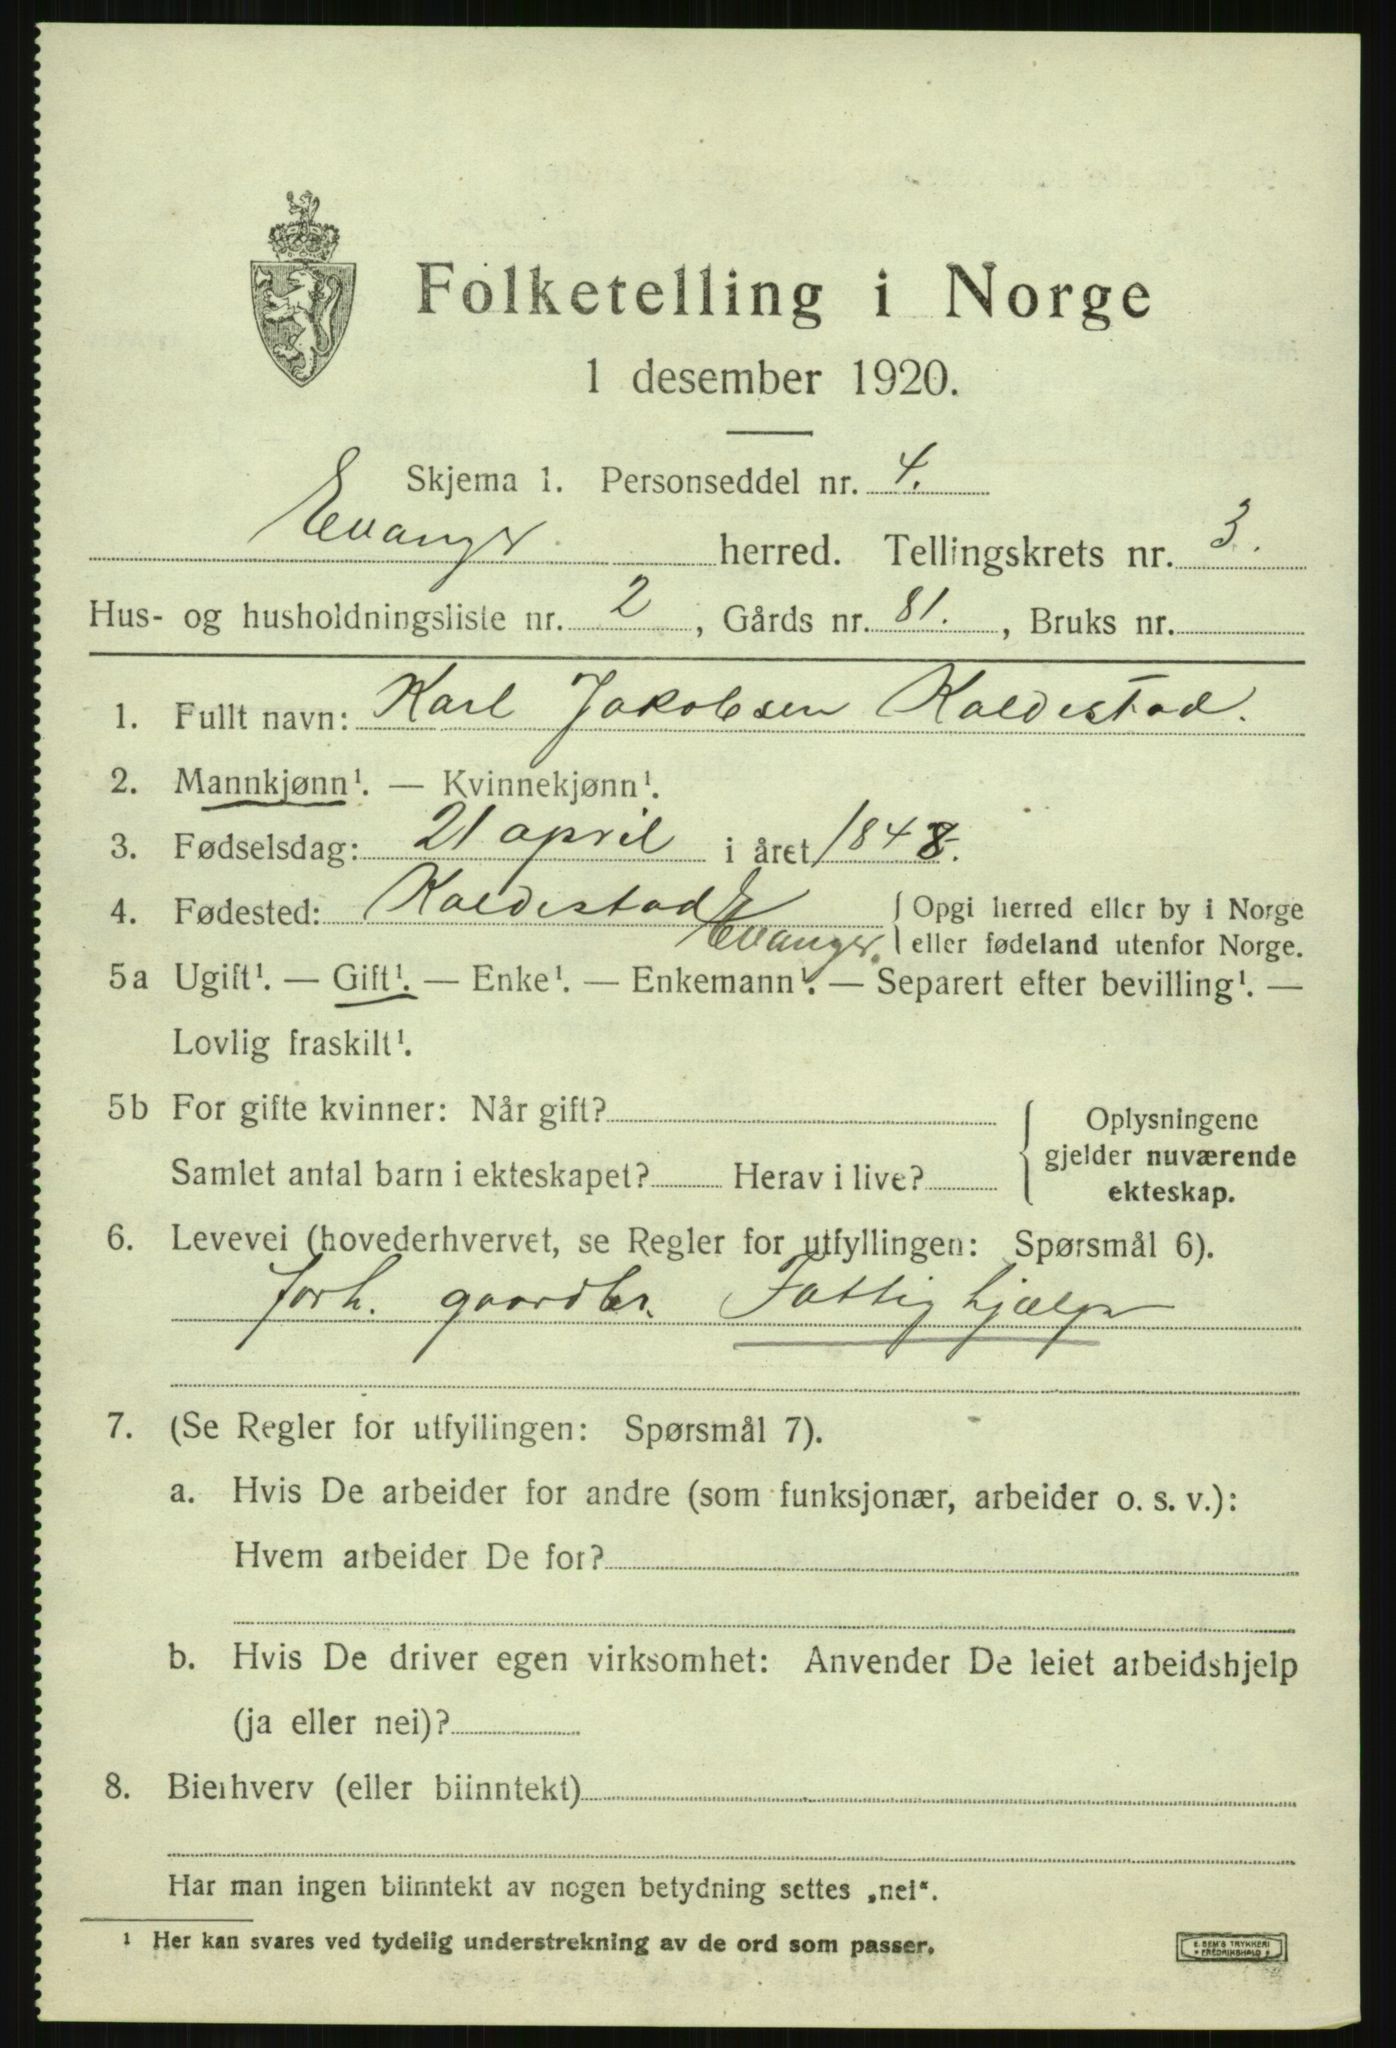 Folketelling i Norge
1 desember 1920.
Skjema 1. Personseddel nr. 4.
Evanger herred. Tellingskrets nr. 3.
Hus- og husholdningsliste nr. 2, Gårds nr. 81., Bruks nr.
1. Fullt navn: Karl Jakobsen Kaldestad.
2. Mannkjønn¹. — Kvinnekjønn¹.
3. Fødselsdag: 21 april i året 1848.
4. Fødested: Kaldestad { Opgi herred eller by i Norge
Evanger. eller fødeland utenfor Norge.
5a Ugift¹. — Gift¹. — Enke¹. — Enkemann¹. — Separert efter bevilling¹. —
Lovlig fraskilt¹.
5b For gifte kvinner: Når gift? { Oplysningene
Samlet antal barn i ekteskapet? Herav i live? gjelder nuværende
ekteskap.
6. Levevei (hovederhvervet, se Regler for utfyllingen: Spørsmål 6).
forh. gaardbr. Fattighjælp
7. (Se Regler for utfyllingen: Spørsmål 7).
a. Hvis De arbeider for andre (som funksjonær, arbeider o. s. v.):
Hvem arbeider De for?
b. Hvis De driver egen virksomhet: Anvender De leiet arbeidshjelp
(ja eller nei)?
8. Bierhverv (eller biinntekt)
Har man ingen biinntekt av nogen betydning settes „nei“.
¹ Her kan svares ved tydelig understrekning av de ord som passer.
E. SEM'S TRYKKERI
* FREDRIKSHALD *